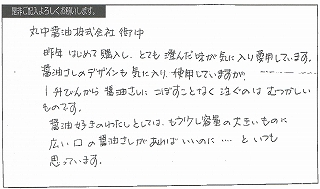 是非ご記入よろしくお願いします。
丸中醤油株式会社 御中
昨年はじめて購入し、とても澄んだ味が気に入り愛用しています。
醤油さしのデザインも気に入り、使用していますが、
1升びんから醤油さしにこぼすことなく注ぐのはむつかしい
ものです。
醤油好きのわたしとしては、もう少し容量の大きいものに
広い口の醤油さしがあればいいのに……といつも
思っています。